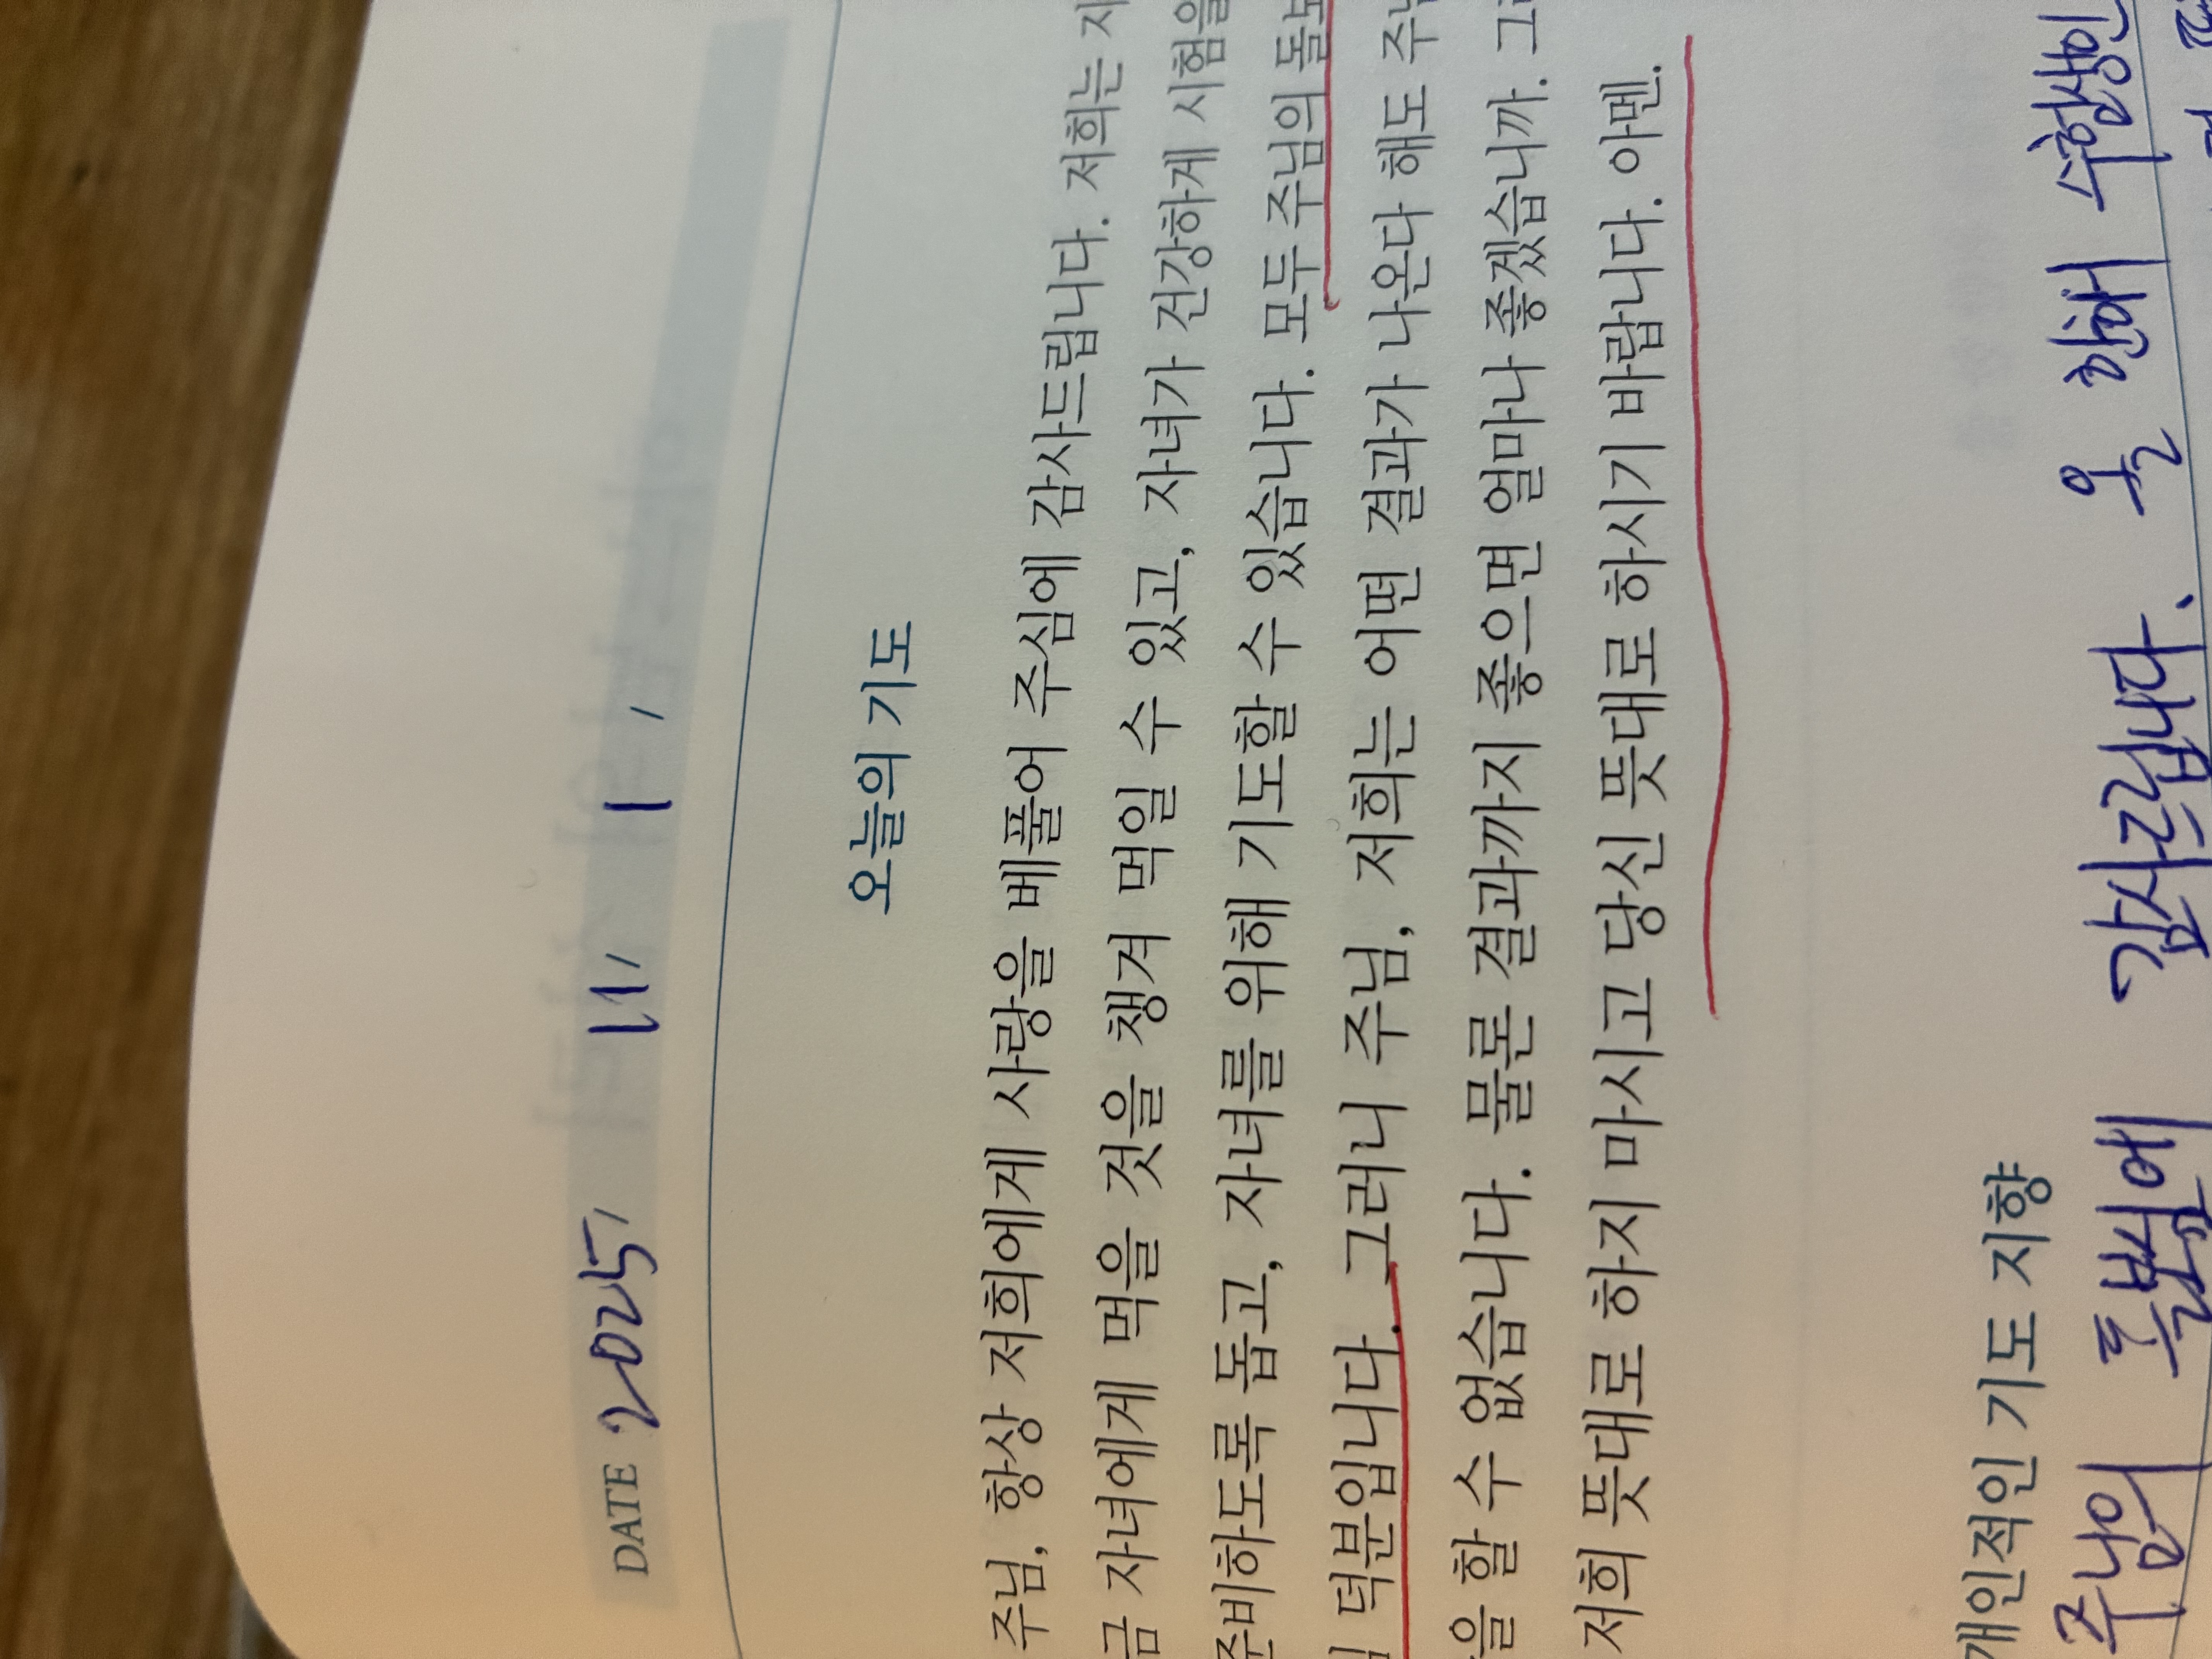 DATE 2025, 11, 1,
오늘의 기도
주님, 항상 저희에게 사랑을 베풀어 주심에 감사드립니다. 저희는 지
금 자녀에게 먹을 것을 챙겨 먹일 수 있고, 자녀가 건강하게 시험을
준비하도록 돕고, 자녀를 위해 기도할 수 있습니다. 모두 주님의 돌보
덕분입니다. 그러니 주님, 저희는 어떤 결과가 나온다 해도 주님
을 할 수 없습니다. 물론 결과까지 좋으면 얼마나 좋겠습니까. 그
저희 뜻대로 하지 마시고 당신 뜻대로 하시기 바랍니다. 아멘.
개인적인 기도 지향
주님의 돌봄에 감사드립니다. 올 한해 수험생인